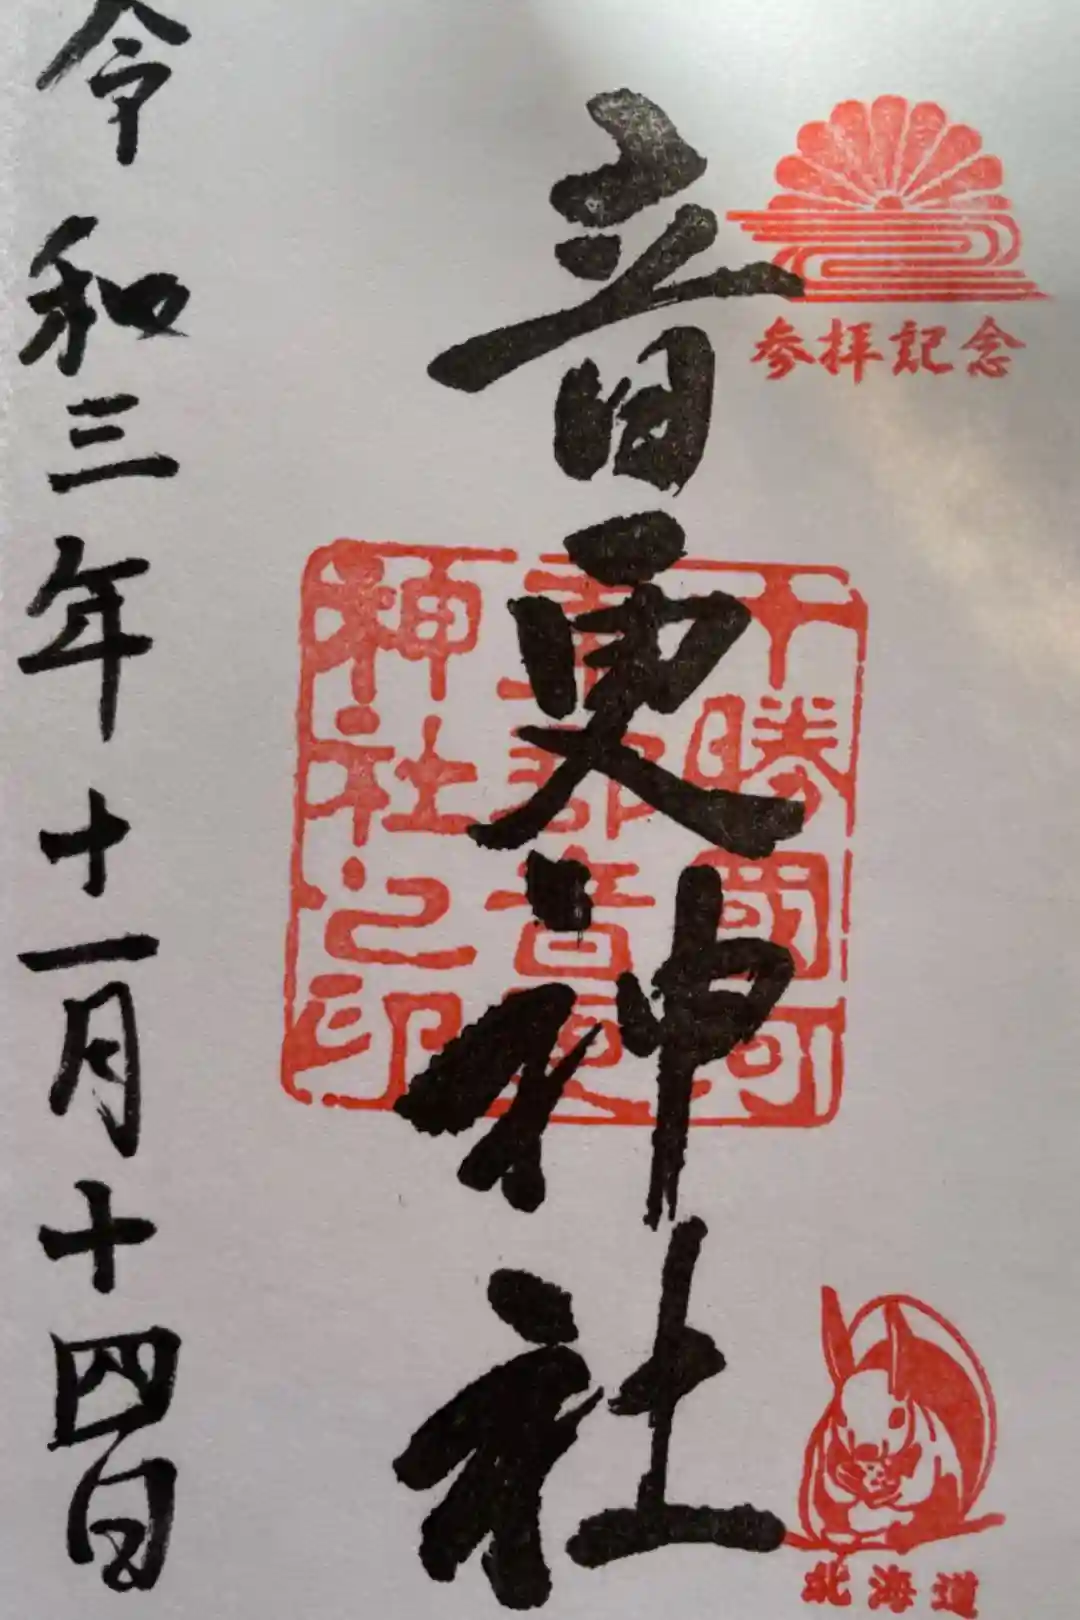 参拝記念
音更神社
十勝國河
東郡音更
神社之印
北海道
令和三年十一月十四日